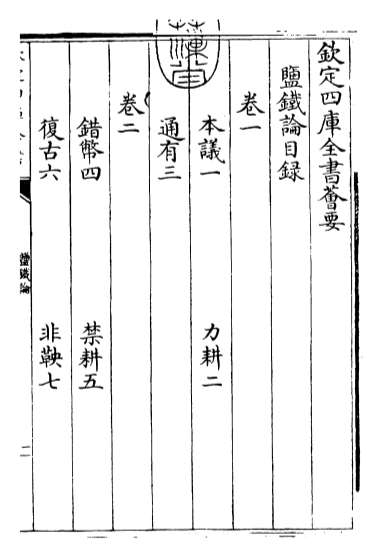 欽定四庫全書薈要
鹽鐵論目録
卷一
本議一 力耕二
通有三
卷二
錯幣四 禁耕五
復古六 非鞅七
鹽鐵論